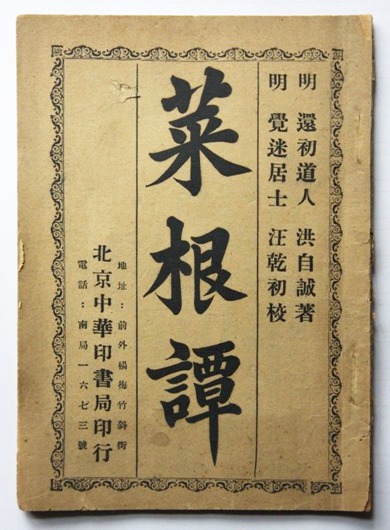 明 還初道人 洪自誠著
明 覺迷居士 汪乾初校
菜根譚
地址：前外楊梅竹斜街
北京中華印書局印行
電話：南局一六七三號